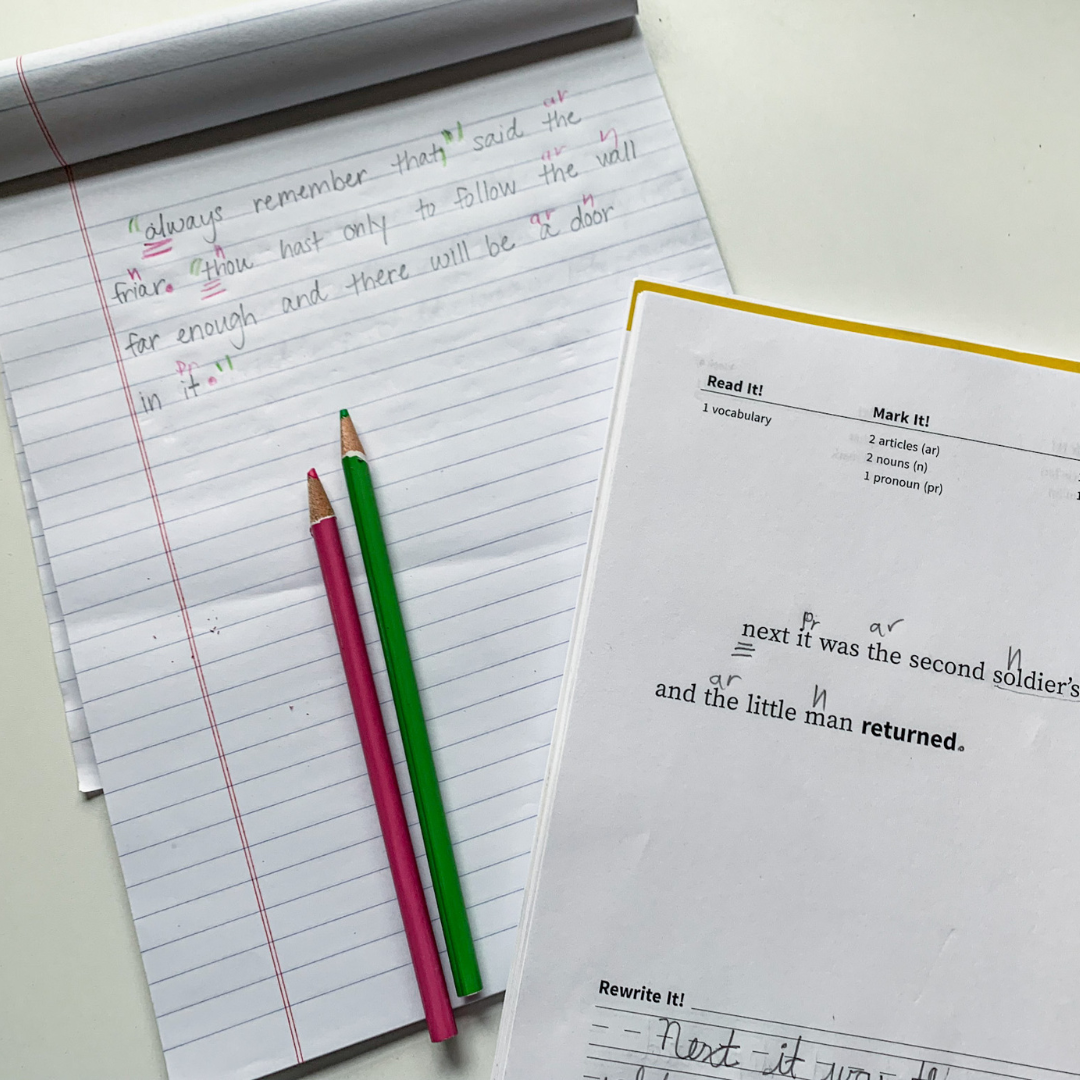 ar
"always remember that," said the
n ar n
friar. "thou hast only to follow the wall
n ar n
far enough and there will be a door
pr
in it."
Read It! Mark It!
1 vocabulary 2 articles (ar)
2 nouns (n)
1 pronoun (pr)
pr ar n
next it was the second soldier's
ar n
and the little man returned.
Rewrite It!
Next it was